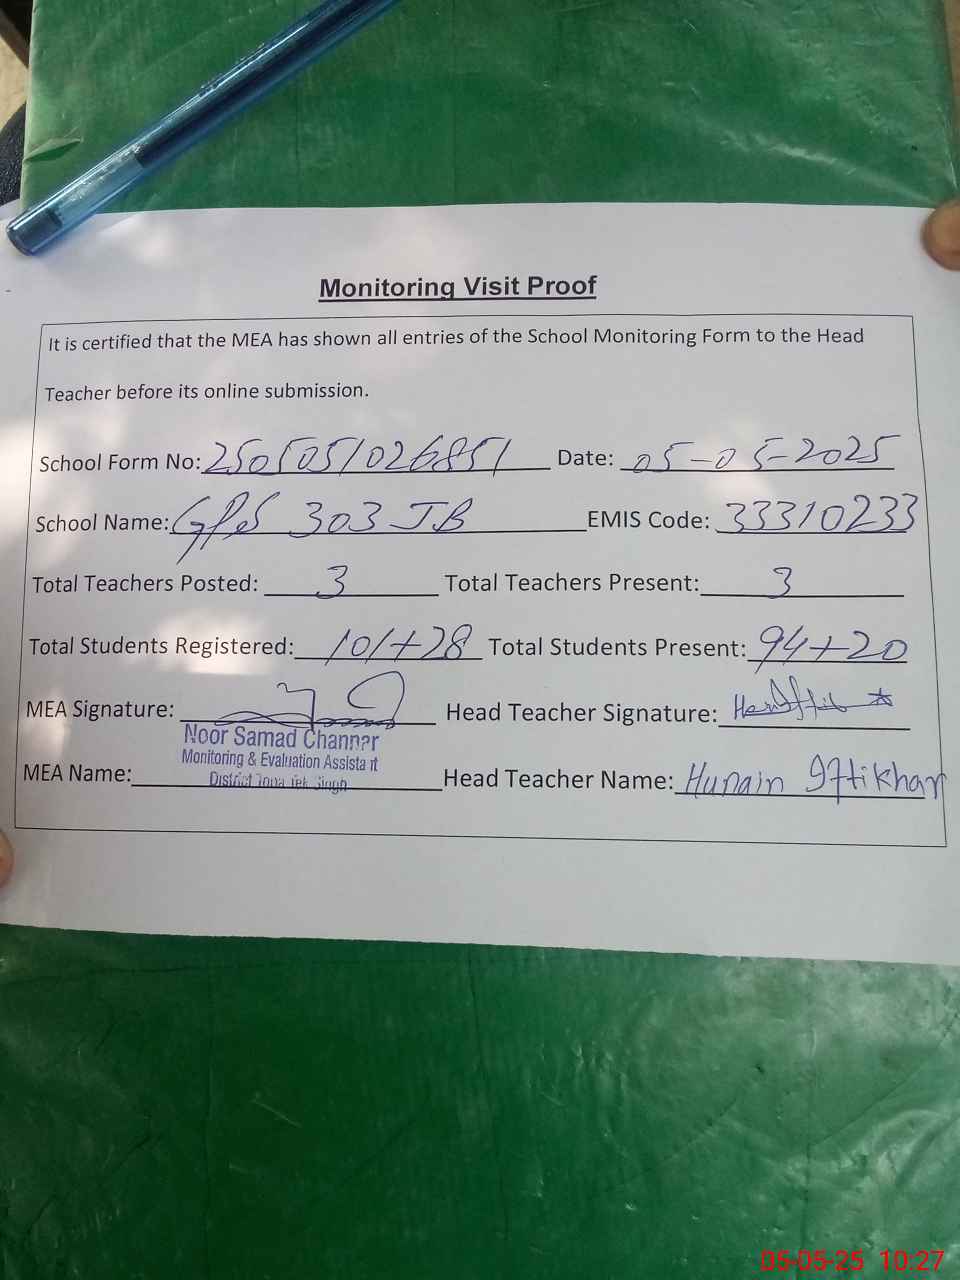 Monitoring Visit Proof
It is certified that the MEA has shown all entries of the School Monitoring Form to the Head
Teacher before its online submission.
School Form No: 2505051026851 Date: 05-05-2025
School Name: GPS 303 JB EMIS Code: 33310233
Total Teachers Posted: 3 Total Teachers Present: 3
Total Students Registered: 101+28 Total Students Present: 94+20
MEA Signature: Head Teacher Signature:
Noor Samad Channar
Monitoring & Evaluation Assistant
District Toba Tek Singh
MEA Name: Head Teacher Name: Hunain Iftikhar
05-05-25 10:27